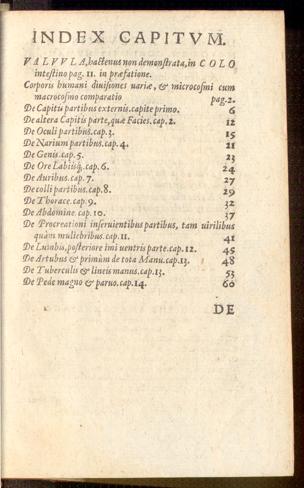 INDEX CAPITVM.
VALVVLA, hactenus non demonstrata, in COLO
intestino pag. 11. in præfatione.
Corporis humani diuisiones uariæ, & microcosmi cum
macrocosmo comparatio pag. 2.
De Capitis partibus externis. capite primo. 6
De altera Capitis parte, quæ Facies. cap. 2. 12
De Oculi partibus. cap. 3. 15
De Narium partibus. cap. 4. 21
De Genis. cap. 5. 23
De Ore Labisq́; cap. 6. 24
De Auribus. cap. 7. 27
De colli partibus. cap. 8. 29
De Thorace. cap. 9. 32
De Abdomine. cap. 10. 37
De Procreationi inseruientibus partibus, tam uirilibus
quàm muliebribus. cap. 11. 41
De Lumbis, posteriore imi uentris parte. cap. 12. 45
De Artubus & primùm de tota Manu. cap. 13. 48
De Tuberculis & lineis manus. cap. 13. 53
De Pede magno & paruo. cap. 14. 60
DE